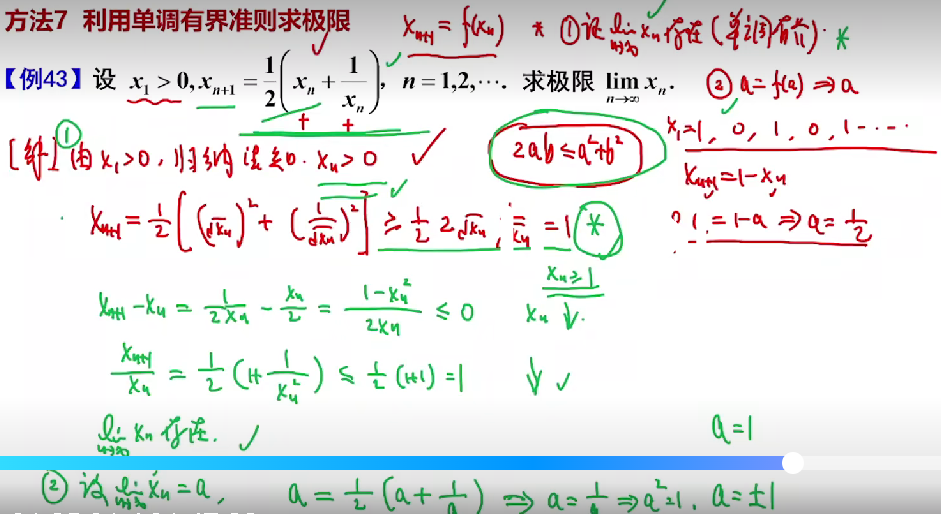 方法7 利用单调有界准则求极限
x_{n+1} = f(x_n) * ① 证 lim_{n→∞} x_n 存在 (单调有界). *
【例43】设 x_1 > 0, x_{n+1} = 1/2 ( x_n + 1/x_n ), n = 1,2,⋯. 求极限 lim_{n→∞} x_n.
② a = f(a) ⇒ a
+ +
①
[解] 由 x_1 > 0, 归纳 x_n > 0 ✓
2ab ≤ a² + b²
x_1 = 1, 0, 1, 0, 1 ⋯
x_{n+1} = 1 - x_n
x_{n+1} = 1/2 [ (√x_n)² + (1/√x_n)² ] ≥ 1/2 2√x_n · 1/√x_n = 1 *
= 1 - a ⇒ a = 1/2
x_n ≥ 1
x_{n+1} - x_n = 1/(2x_n) - x_n/2 = (1 - x_n²)/(2x_n) ≤ 0 x_n ↓.
x_{n+1}/x_n = 1/2 (1 + 1/x_n²) ≤ 1/2 (1+1) = 1 ↓ ✓
lim_{n→∞} x_n 存在. ✓
a = 1
② 设 lim_{n→∞} x_n = a, a = 1/2 (a + 1/a) ⇒ a = 1/a ⇒ a² = 1. a = ±1